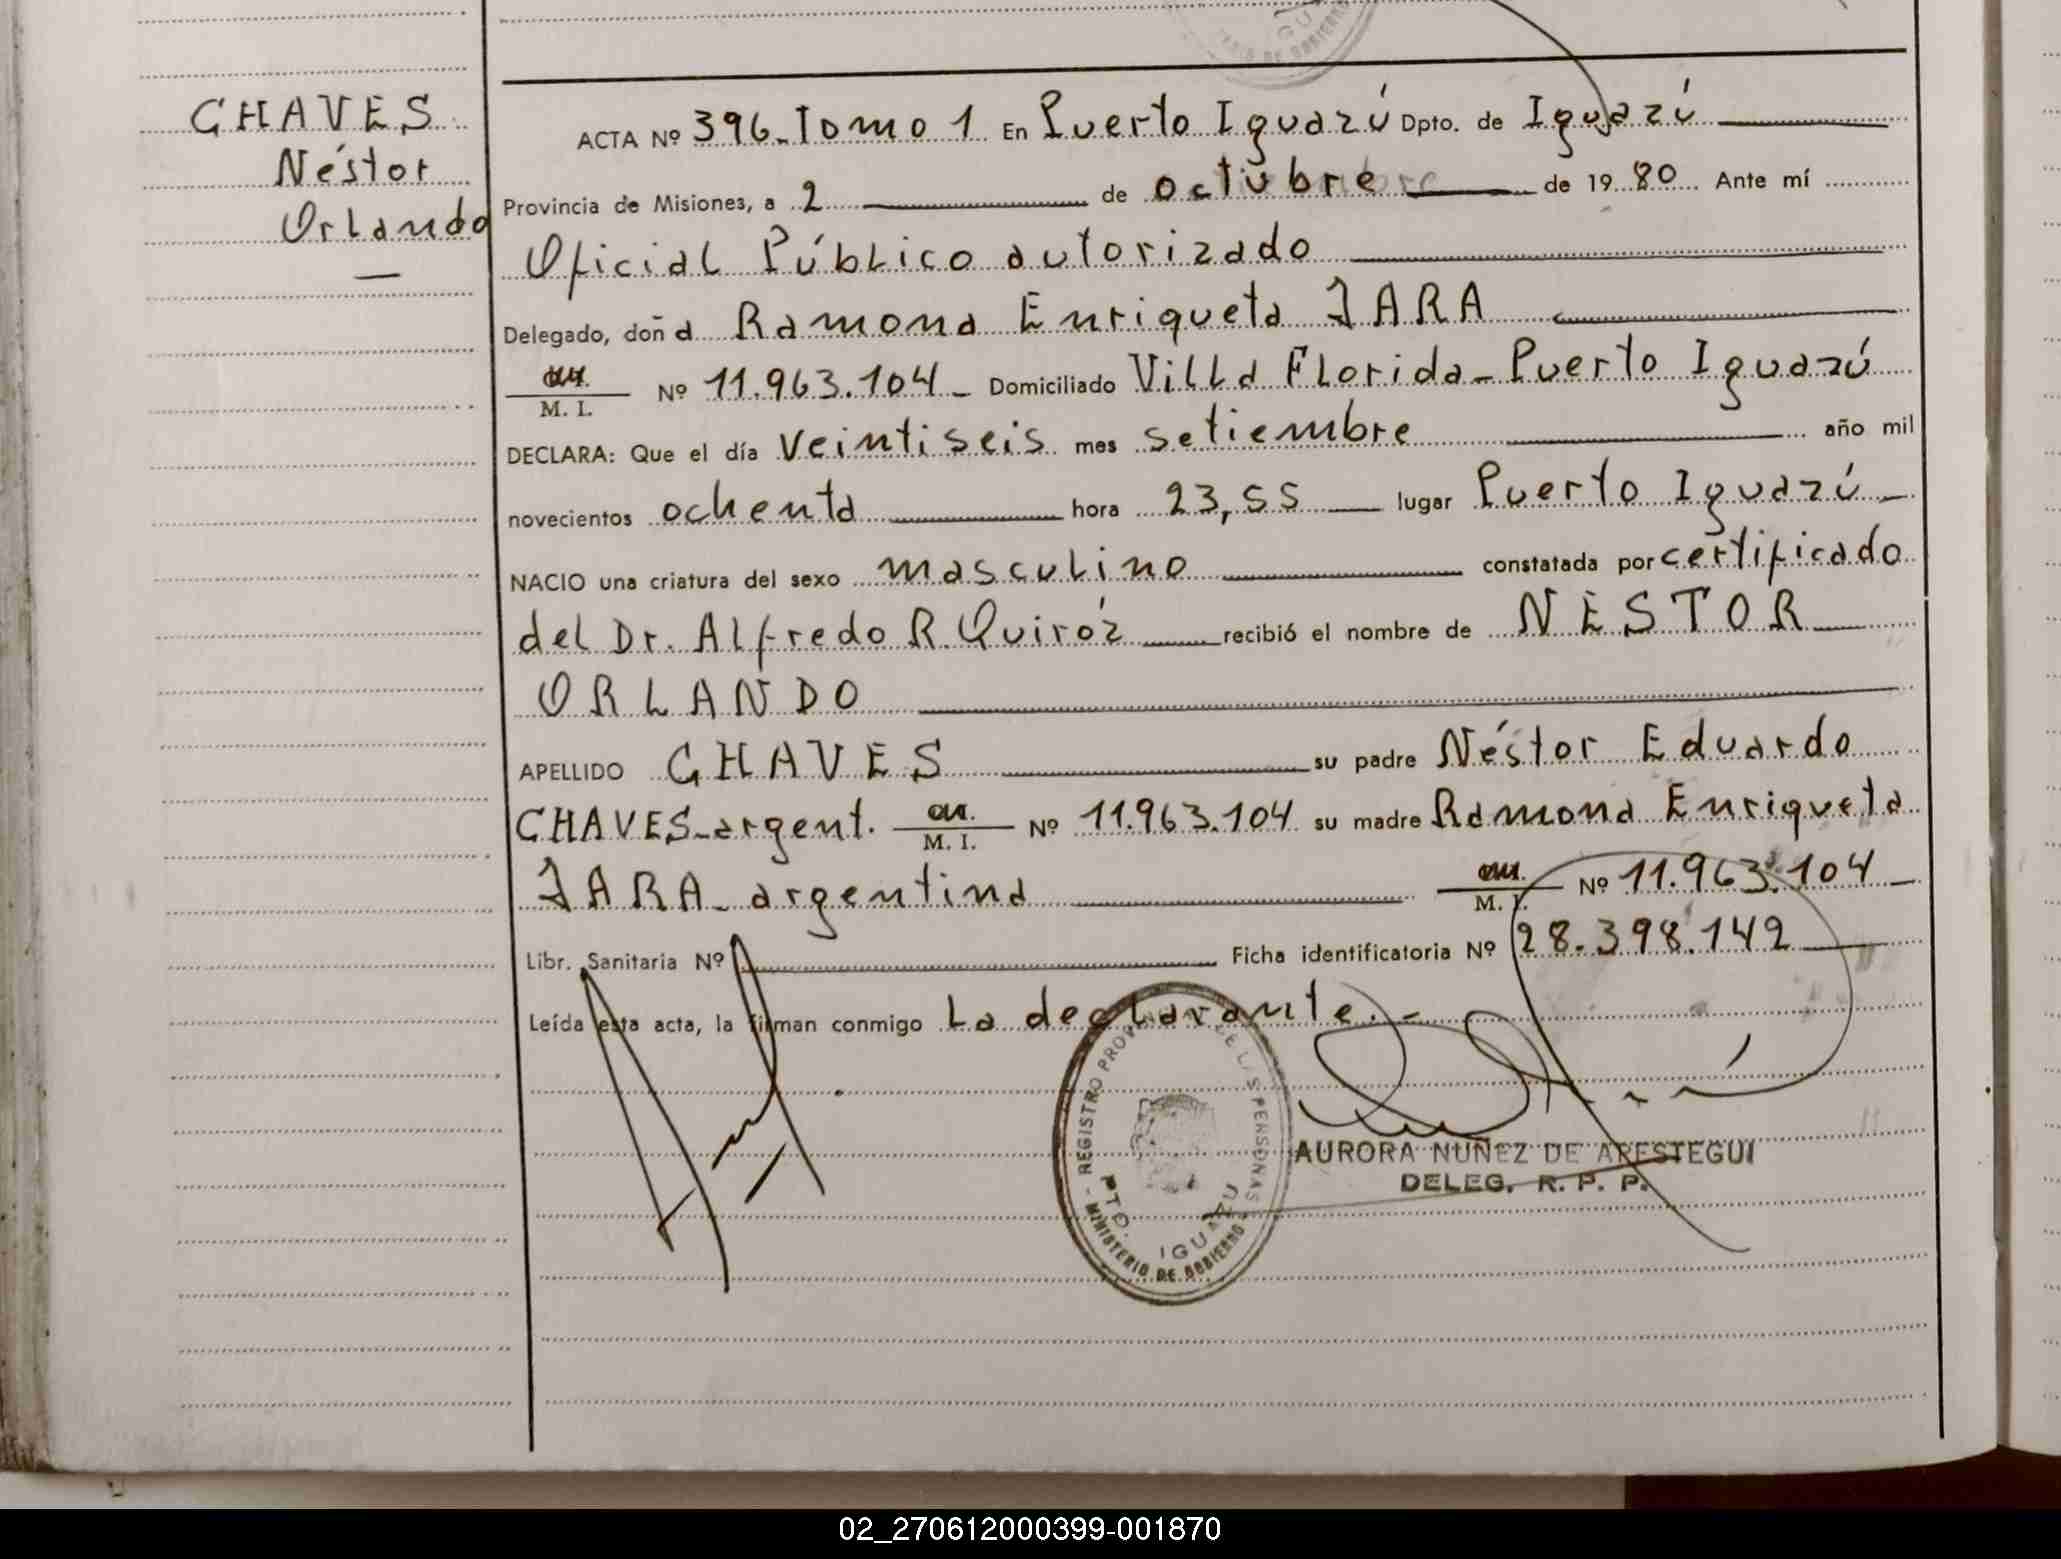 CHAVES
Néstor
Orlando
ACTA Nº 396-Tomo 1 En Puerto Iguazú Dpto. de Iguazú
Provincia de Misiones, a 2 de octubre de 1980 Ante mí
Oficial Público autorizado
Delegado, doña Ramona Enriqueta JARA
M. I. Nº 11.963.104 - Domiciliado Villa Florida - Puerto Iguazú
DECLARA: Que el día veintiseis mes setiembre año mil
novecientos ochenta hora 23,55 lugar Puerto Iguazú
NACIO una criatura del sexo masculino constatada por certificado
del Dr. Alfredo R. Quiróz recibió el nombre de NESTOR
ORLANDO
APELLIDO CHAVES su padre Néstor Eduardo
CHAVES-argent. M. I. Nº 11.963.104 su madre Ramona Enriqueta
JARA - argentina M. I. Nº 11.963.104
Libr. Sanitaria Nº Ficha identificatoria Nº 28.398.142
Leída esta acta, la firman conmigo La declarante.-
REGISTRO PROV DE LAS PERSONAS
PTO. IGUAZU
MINISTERIO DE GOBIERNO
AURORA NUÑEZ DE ARESTEGUI
DELEG. R. P. P.
02_270612000399-001870